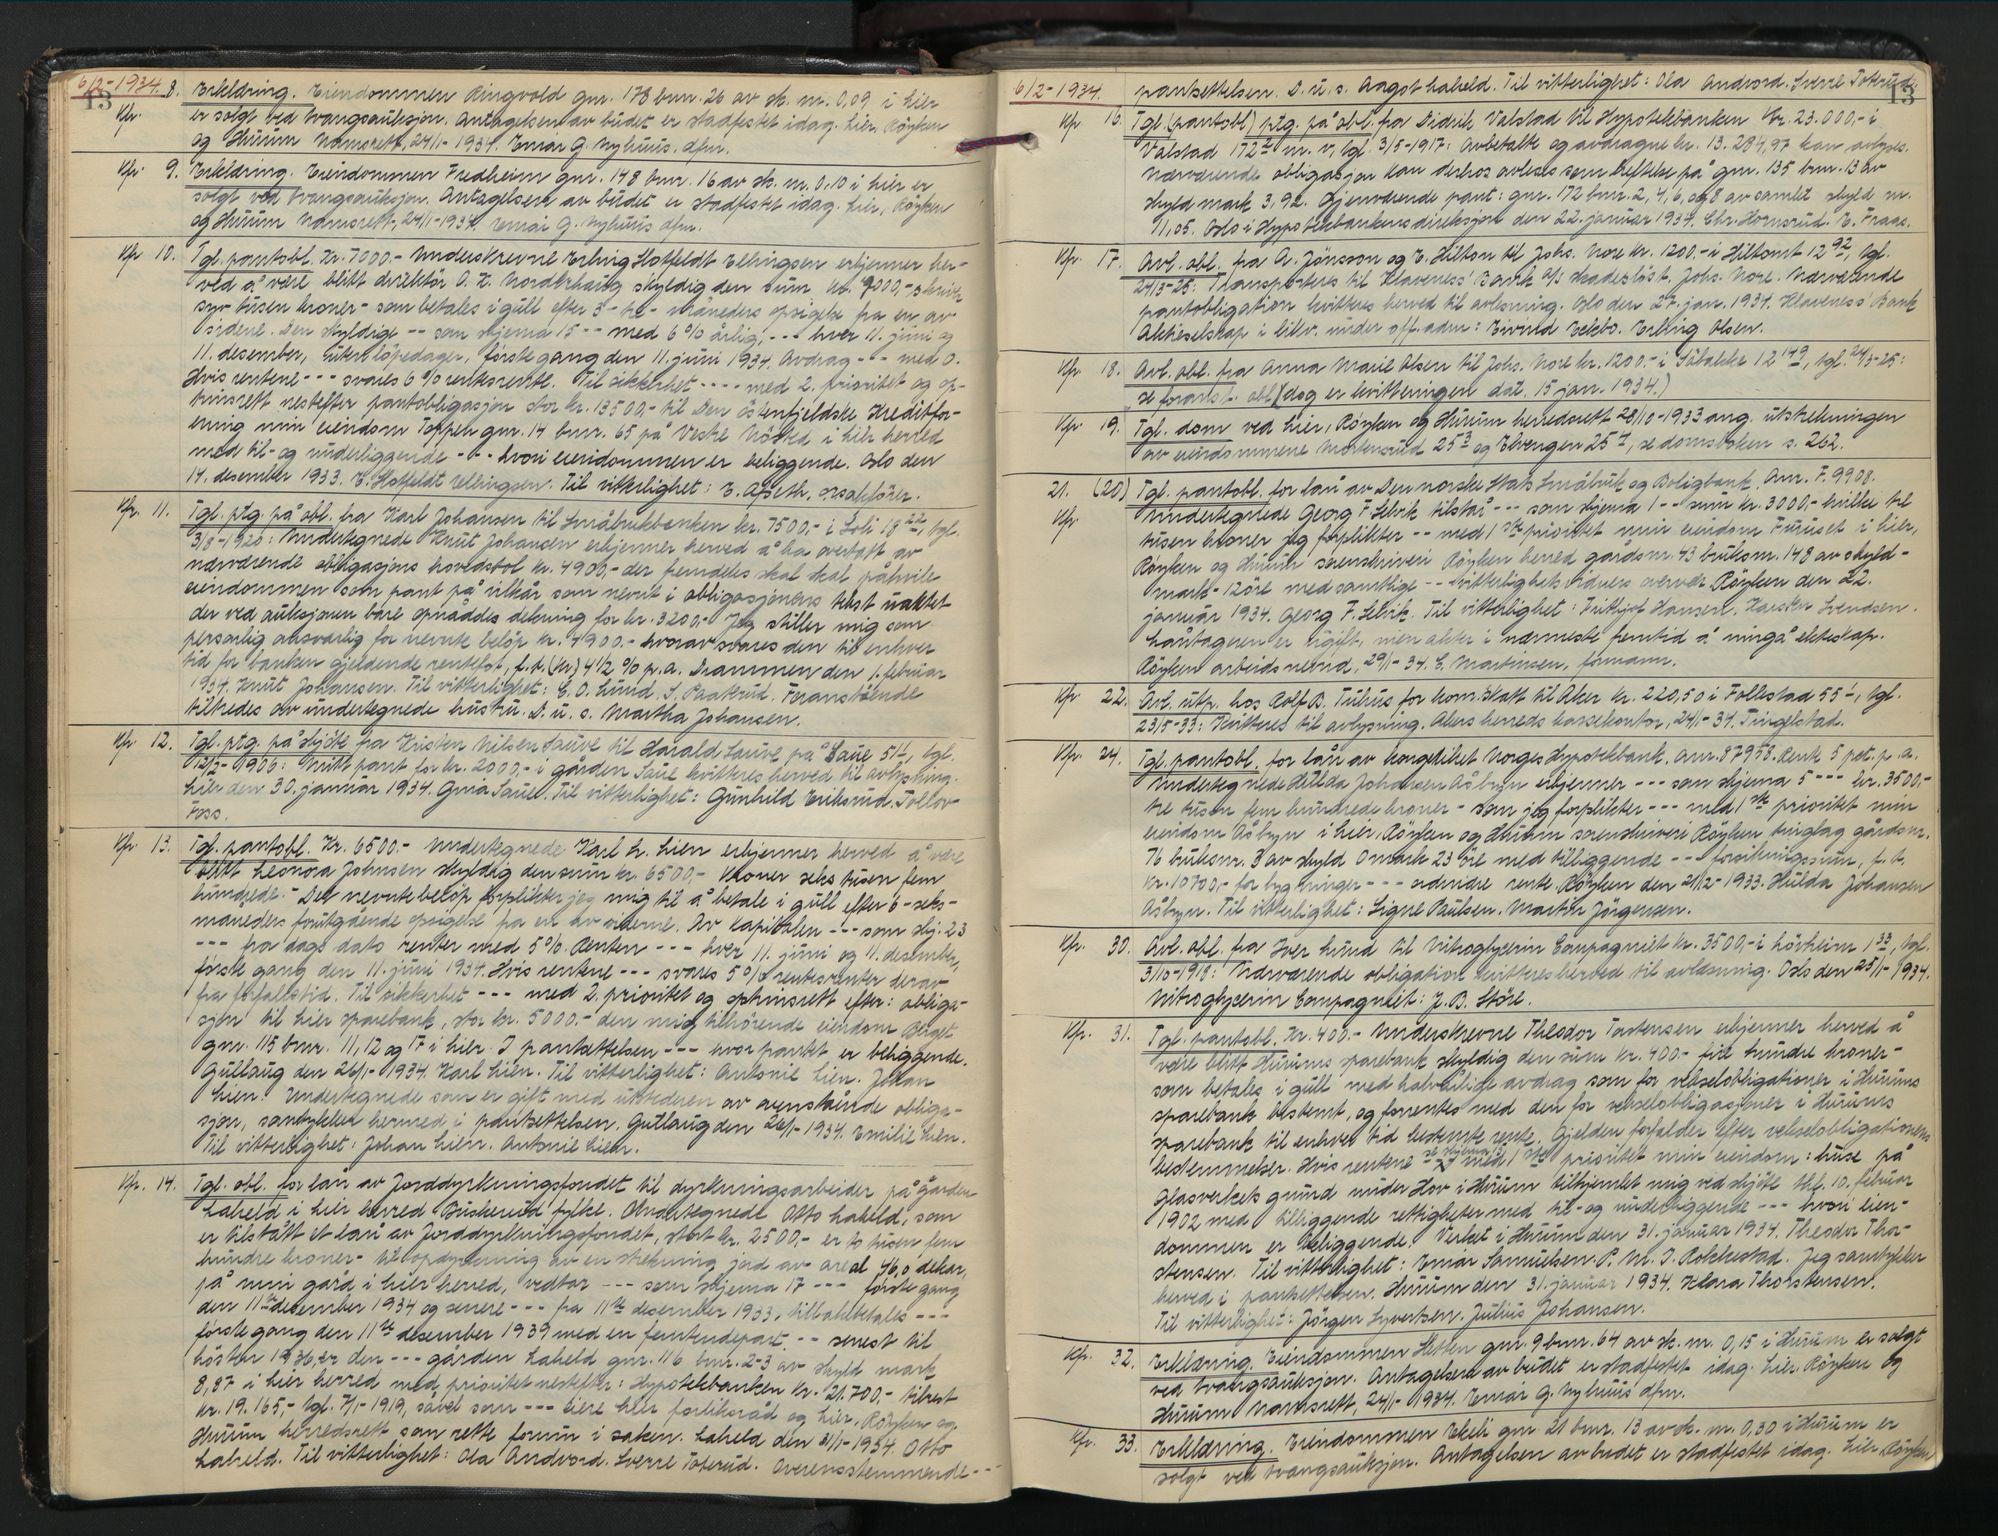 6/2-1934.
13
Kfr. 8. Erklæring. Eiendommen Ringvold gnr. 178 bnr. 26 av sk. m. 0,09 i Lier
er solgt ved tvangsauksjon. Antagelsen av budet er stadfestet idag. Lier, Røyken
og Hurum namsrett, 24/1-1934. Einar G. Nyhuus. dfm.
Kfr. 9. Erklæring. Eiendommen Fredheim gnr. 148 bnr. 16 av sk. m. 0,10 i Lier er
solgt ved tvangsauksjon. Antagelsen av budet er stadfestet idag. Lier, Røyken
og Hurum namsrett, 24/1-1934. Einar G. Nyhuus dfm.
Kfr. 10. Tgl. pantobl. Kr. 7000.- Underskrevne Erling Hotfeldt Ellingsen erkjenner her-
ved å være blitt direktør O. H. Norderhaug skyldig den sum kr. 7000,- skriver
syv tusen kroner - som betales i gull efter 3 - tre - måneders opsigelse fra en av
sidene. Den skyldige -- som skjema 15 -- med 6 % årlig, --- hver 11. juni og
11. desember, første gang den 11. juni 1934. Avdrag --- med 0.
Hvis rentene --- svares 6 % rentesrente. Til sikkerhet ---- med 2. prioritet og op-
trinsrett nestefter pantobligasjon stor kr. 13500,- til Den Østenfjeldske Kreditfor-
ening min eiendom Toppen gnr. 14 bnr. 65 på Vestre Nøsted i Lier herred
med til- og underliggende --- hvori eiendommen er beliggende. Oslo den
14. desember 1933. E. Hotfeldt Ellingsen. Til vitterlighet: E. Apseth, orsakfører.
Kfr. 11. Tgl. ptg. på obl. fra Karl Johansen til Småbrukbanken kr. 7500,- i Soli 18 22, tgl.
3/8-1920: Undertegnede Knut Johansen erkjenner herved å ha overtatt av
nærværende obligasjons hovedstol kr. 4900,- der fremdeles skal skal påhvile
eiendommen som pant på vilkår som nevnt i obligasjonens tekst uaktet
der ved auksjonen bare opnåddes dekning for kr. 3200.- Jeg stiller mig som
personlig ansvarlig for nevnte beløp kr. 4900.- hvorav svares den til enhver
tid for banken gjeldende rentefot, f.t. (kr) 4 1/2 % p. a. Drammen den 1. februar
1934. Knut Johansen. Til vitterlighet: E. O. Lund. S. Paatrud. Foranstående
tiltredes av undertegnede hustru. D. u. s. Martha Johansen.
Kfr. 12. Tgl. ptg. på skjøte fra Kristen Nilsen Sauve til Harald Sauve på Saue 51 1, tgl.
12/2-1906: Mitt pant for kr. 2000,- i gården Saue kvitteres herved til avlysning.
Lier den 30. januar 1934. Gina Saue. Til vitterlighet: Gunhild Eriksrud. Tollov
Foss.
Kfr. 13. Tgl. pantobl. Kr. 6500.- Undertegnede Karl L. Lien erkjenner herved å være
blitt Leonora Johnsen skyldig den sum kr. 6500,- Kroner seks tusen fem
hundrede. - Det nevnte beløp forplikter jeg mig til å betale i gull efter 6 - seks-
måneders forutgående opsigelse fra en av siderne. Av kapitalen --- som skj. 23
--- fra dags dato renter med 5 % Renten --- hver 11. juni og 11. desember,
første gang den 11. juni 1934. Hvis rentene --- svares 5 % rentesrenter derav
fra forfallstid. Til sikkerhet --- med 2. prioritet og optrinsrett efter: obliga-
sjon til Lier sparebank, stor kr. 5000.- den mig tilhørende eiendom Berget
gnr. 115 bnr. 11, 12 og 17 i Lier. I pantsettelsen --- hvor pantet er beliggende.
Gullaug den 26/1-1934. Karl Lien. Til vitterlighet: Antonie Lien. Johan
Lien. Undertegnede som er gift med utstederen av ovenstående obliga-
sjon, samtykker hermed i pantsettelsen. Gullaug den 26/1-1934. Emilie Lien.
Til vitterlighet: Johan Lien. Antonie Lien.
Kfr. 14. Tgl. obl. for lån av Jorddyrkningsfondet til dyrkningsarbeider på gården
Laheld i Lier herred Buskerud fylke. Undertegnede Otto Laheld, som
er tilstått et lån av Jorddyrkningsfondet, stort kr. 2500,- er to tusen fem
hundre kroner - til opdyrkning av en strekning jord av areal 46,0 dekar,
på min gård i Lier herred, vedtar --- som skjema 17 --- første gang
den 11te desember 1934 og senere --- fra 11te desember 1933, tilbakebetales ---
første gang den 11te desember 1939 med en femtendepart. -- senest til
høsten 1936, er den --- gården Laheld gnr. 116 bnr. 2-3 av skyld mark
8,87 i Lier herred med prioritet nestefter: Hypotekbanken kr. 21.700,- tilrest
kr. 19.165,- tgl. 7/1-1919, såvel som --- Lier forliksråd og Lier, Røyken og
Hurum herredsrett som rette forum i saken. Laheld den 31/1-1934. Otto
Laheld. Til vitterlighet: Ola Andvord. Sverre Toverud. Overensstemmende---
6/2-1934.
13
pantsettelsen. D. u. s. Aagot Laheld. Til vitterlighet: Ola Andvord. Sverre Toverud.
Kfr 16. Tgl. (pantobl) ptg. på obl. fra Didrik Valstad til Hypotekbanken kr. 23.000,- i
Valstad 172 2 m. v, tgl. 3/5-1917: Avbetalte og avdragne kr. 13.284,97 kan avlyses.
Nærværende obligasjon kan derhos avleses som heftelse på gnr. 135 bnr. 13 av
skyld mark 3,92. Gjenværende pant: gnr. 172 bnr. 2, 4, 6, og 8 av samlet skyld m.
11,05. Oslo i Hypotekbankens direksjon den 22. januar 1934. Chr. Hornsrud. E. Fraas.
Kfr. 17. Avl. obl. fra A. Jönsson og E. Hilton til Johs. Nore kr. 1200.- i Hiltomt 12 92, tgl.
24/3-25: Transporteres til Klaveness' Bank A/S skadesløst. Johs. Nore. Nærværende
pantobligation kvitteres herved til avlesning. Oslo den 27. jan. 1934. Klaveness' Bank
Aktieselskap i likv. under off. adm: Eivind Eckbo. Erling Olsen.
Kfr 18. Avl. obl. fra Anna Marie Olsen til Johs. Nore kr. 1200.- i Solbakke 12 149, tgl. 24/3-25:
se foranst. obl. (dog er kvitteringen dat. 15 jan. 1934.)
Kfr 19. Tgl. dom ved Lier, Røyken og Hurum herredsrett 28/10-1933 ang. utstrekningen
av eiendommene Mortensrud 25 3 og Elvengen 25 7, se domsboken s. 262.
21. (20) Tgl. pantobl. for lån av Den norske Stats Småbruk og Boligbank. Anr. F. 9908.
Kfr Undertegnede Georg F. Selvik tilstår --- som skjema 1 -- sum kr. 3000.- hvilke tre
tusen kroner jeg forplikter -- med 1ste prioritet min eiendom Furuset i Lier,
Røyken og Hurum sorenskriveri Røyken herred gårdsnr. 43 bruksnr. 148 av skyld-
mark - 12 øre med samtlige -- vitterlighetsvidners overvær. Røyken den 22.
januar 1934. Georg F. Selvik. Til vitterlighet: Fritjof Hansen. Karsten Svendsen.
Låntageren er ugift, men akter i nærmeste fremtid å inngå ekteskap.
Røyken arbeidsnevnd, 29/1-34. E. Martinsen, formann.
Kfr 22. Avl. utp. hos Rolf B. Tuhus for kom. skatt til Aker kr. 220,50 i Folkestad 55 1, tgl.
23/5-33: Kvitteres til avlysning. Akers herreds kassekontor, 24/1-34. Tingelstad.
Kfr. 24. Tgl. pantobl. for lån av Kongeriket Norges Hypotekbank, anr. 87958. Rente 5 pct. p. a.
Undertegnede Hulda Johansen Åsbyn erkjenner --- som skjema 5 --- kr. 3500,-
tre tusen fem hundrede kroner - som jeg forplikter --- med 1ste prioritet min
eiendom Åsbyn i Lier, Røyken og Hurum sorenskriveri Røyken tinglag gårdsnr.
76 bruksnr. 3 av skyld 0 mark 23 øre med tilliggende --- forsikringssum, f. t.
kr. 10700,- for bygninger --- ordinære rente. Røyken den 21/12-1933. Hulda Johansen
Åsbyn. Til vitterlighet: Signe Paulsen. Martin Jörgensen.
Kfr. 30. Avl. obl. fra Iver Lund til Nitroglycerin Compagniet kr. 3500,- i Lövheim 1 33, tgl.
31/10-1918: Nærværende obligation kvitteres herved til avlæsning. Oslo den 25/1-1934.
Nitroglycerin Compagniet: J. B. Störe.
Kfr. 31. Tgl. pantobl. Kr. 400.- Underskrevne Theodor Torstensen erkjenner herved å
være blitt Hurums sparebank skyldig den sum kr. 400.- fire hundre kroner -
som betales i gull med halvårlige avdrag som for vekselobligationer i Hurums
sparebank bestemt, og forrentes med den for vekselobligasjoner i Hurums
sparebank til enhver tid bestemte rente. Gjelden forfalder efter vekselobligationens
bestemmelser. Hvis rentene se skjema med 1ste prioritet min eiendom: huse på
Glasverkets grund under Hov i Hurum tilhjemlet mig ved skjøte thl. 10. februar
1902 med tilliggende rettigheter med til- og underliggende --- hvori eien-
dommen er beliggende. Verket i Hurum den 31. januar 1934. Theodor Tho-
stensen. Til vitterlighet: Einar Samuelsen. P. M. J. Rokkestad. Jeg samtykker
herved i pantsettelsen. Hurum den 31. januar 1934. Klara Thorstensen.
Til vitterlighet: Jörgen Syvertsen. Julius Johansen.
Kfr. 32. Erklæring. Eiendommen Sletten gnr. 9 bnr. 64 av sk. m. 0,15 i Hurum er solgt
ved tvangsauksjon. Antagelsen av budet er stadfestet idag. Lier, Røyken og
Hurum namsrett, 24/1-1934. Einar G. Nyhuus dfm.
Kfr. 33. Erklæring. Eiendommen Ekeli gnr 21 bnr. 13 av sk. m. 0,30 i Hurum er
solgt ved tvangsauksjon. Antagelsen av budet er stadfestet idag. Lier, Røyken